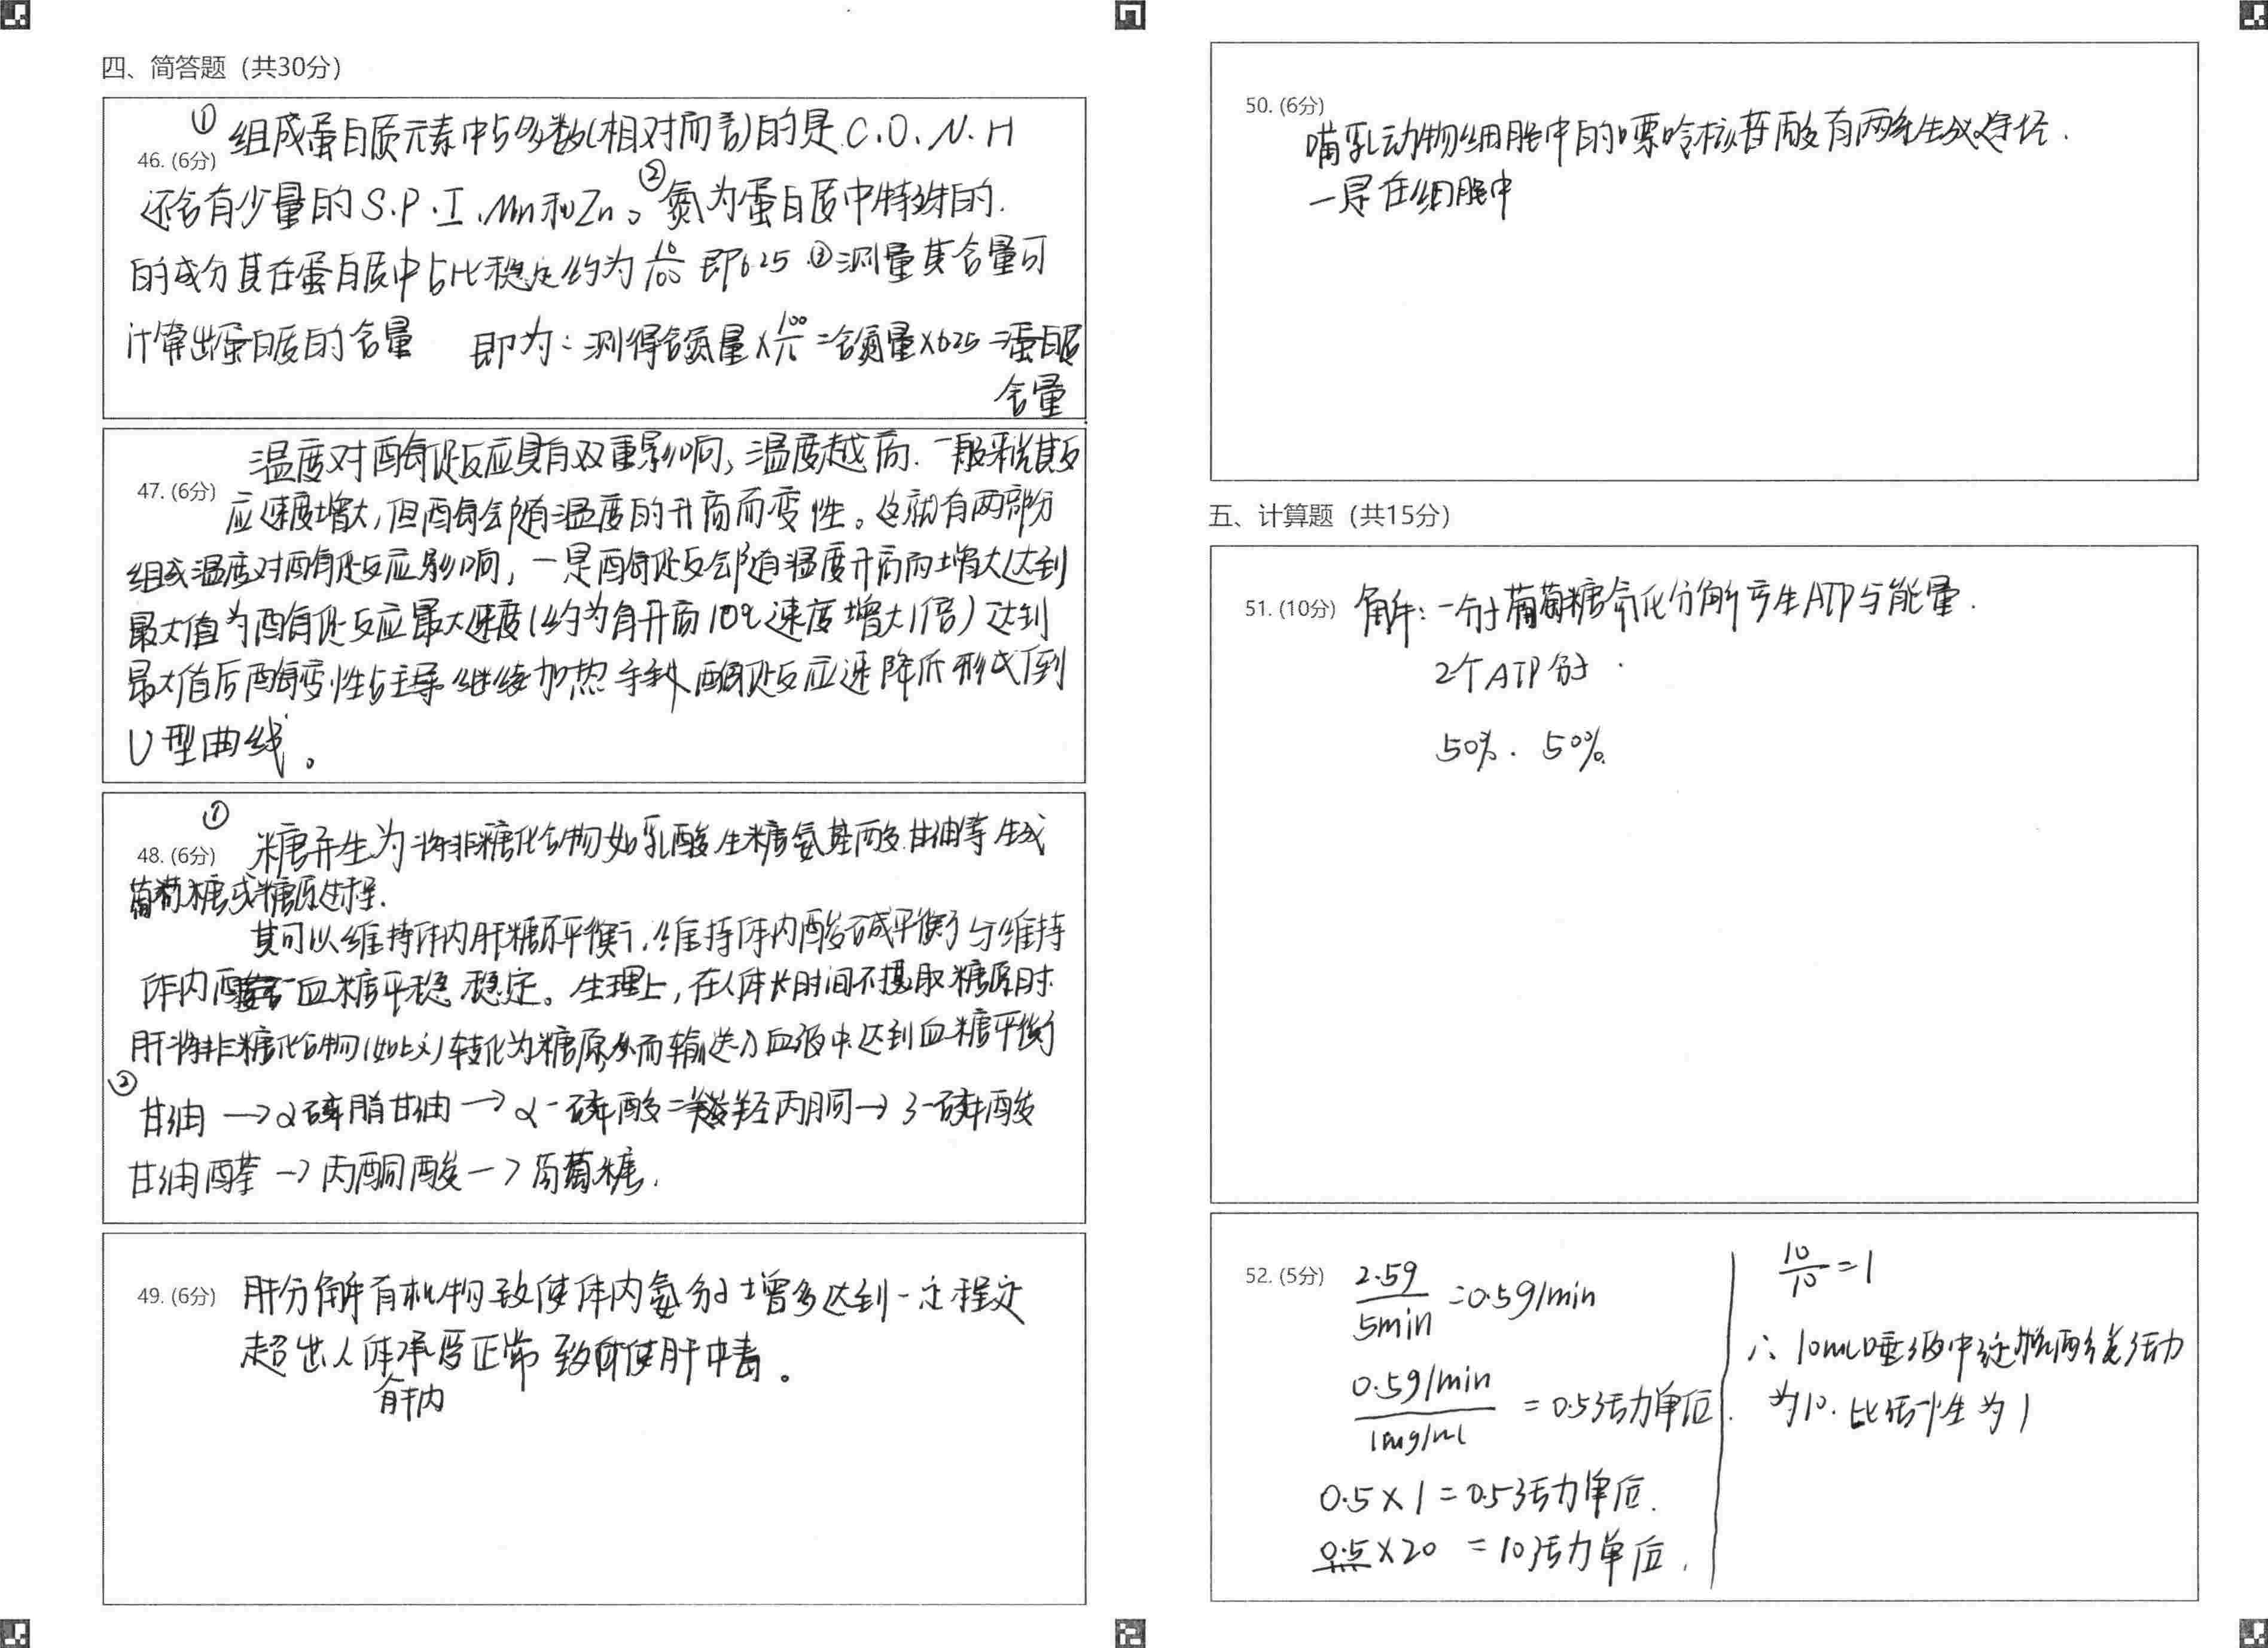 四、简答题（共30分）
① 组成蛋白质元素中占多数(相对而言)的是C.O.N.H
46. (6分)
还含有少量的S.P.I.Mn和Zn。②氮为蛋白质中特殊的.
的成分其在蛋白质中占比稳定约为16/100 即6.25 ③测量其含量可
计算出蛋白质的含量 即为：测得含氮量×100/16=含氮量×6.25=蛋白质
含量
温度对酶促反应具有双重影响，温度越高.一般来说其反
47. (6分) 应速度增大，但酶会随温度的升高而变性。这就有两部分
组成温度对酶促反应影响，一是酶促反会随温度升高而增大达到
最大值为酶促反应最大速度(约为每升高10℃速度增大1倍)达到
最大值后酶变性占主导 继续加热 酶促反应速降低形成倒
U型曲线。
①
48. (6分) 糖异生为将非糖化合物如乳酸生糖氨基酸.甘油等生成
葡萄糖或糖原过程.
其可以维持体内肝糖原平衡,维持体内酸碱平衡与维持
体内血糖平稳 稳定。生理上，在人体长时间不摄取糖原时.
肝将非糖化合物(如上文)转化为糖原从而输送入血液中达到血糖平衡
②
甘油→α磷脂甘油→α-磷酸二羟丙酮→3-磷酸
甘油醛→丙酮酸→葡萄糖.
49. (6分) 肝分解有机物致使体内氨分子增多达到一定程度
超出人体承受正常 致使肝中毒。
肝内
50. (6分)
哺乳动物细胞中的嘌呤核苷酸有两条生成途径.
一是在细胞中
五、计算题（共15分）
51. (10分) 解：一分子葡萄糖氧化分解产生ATP与能量.
2个ATP分子.
50%. 50%.
52. (5分) 2.5g/5min =0.5g/min
0.5g/min / 1mg/ml = 0.5活力单位.
0.5×1=0.5活力单位.
0.5×20 =10活力单位.
10/10=1
∴10mL唾液中淀粉酶总活力
为10.比活性为1